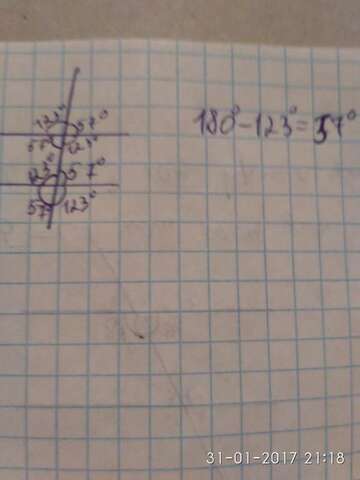 123° 57°
57° 123°
123° 57°
57° 123°
180° - 123° = 57°
31-01-2017 21:18